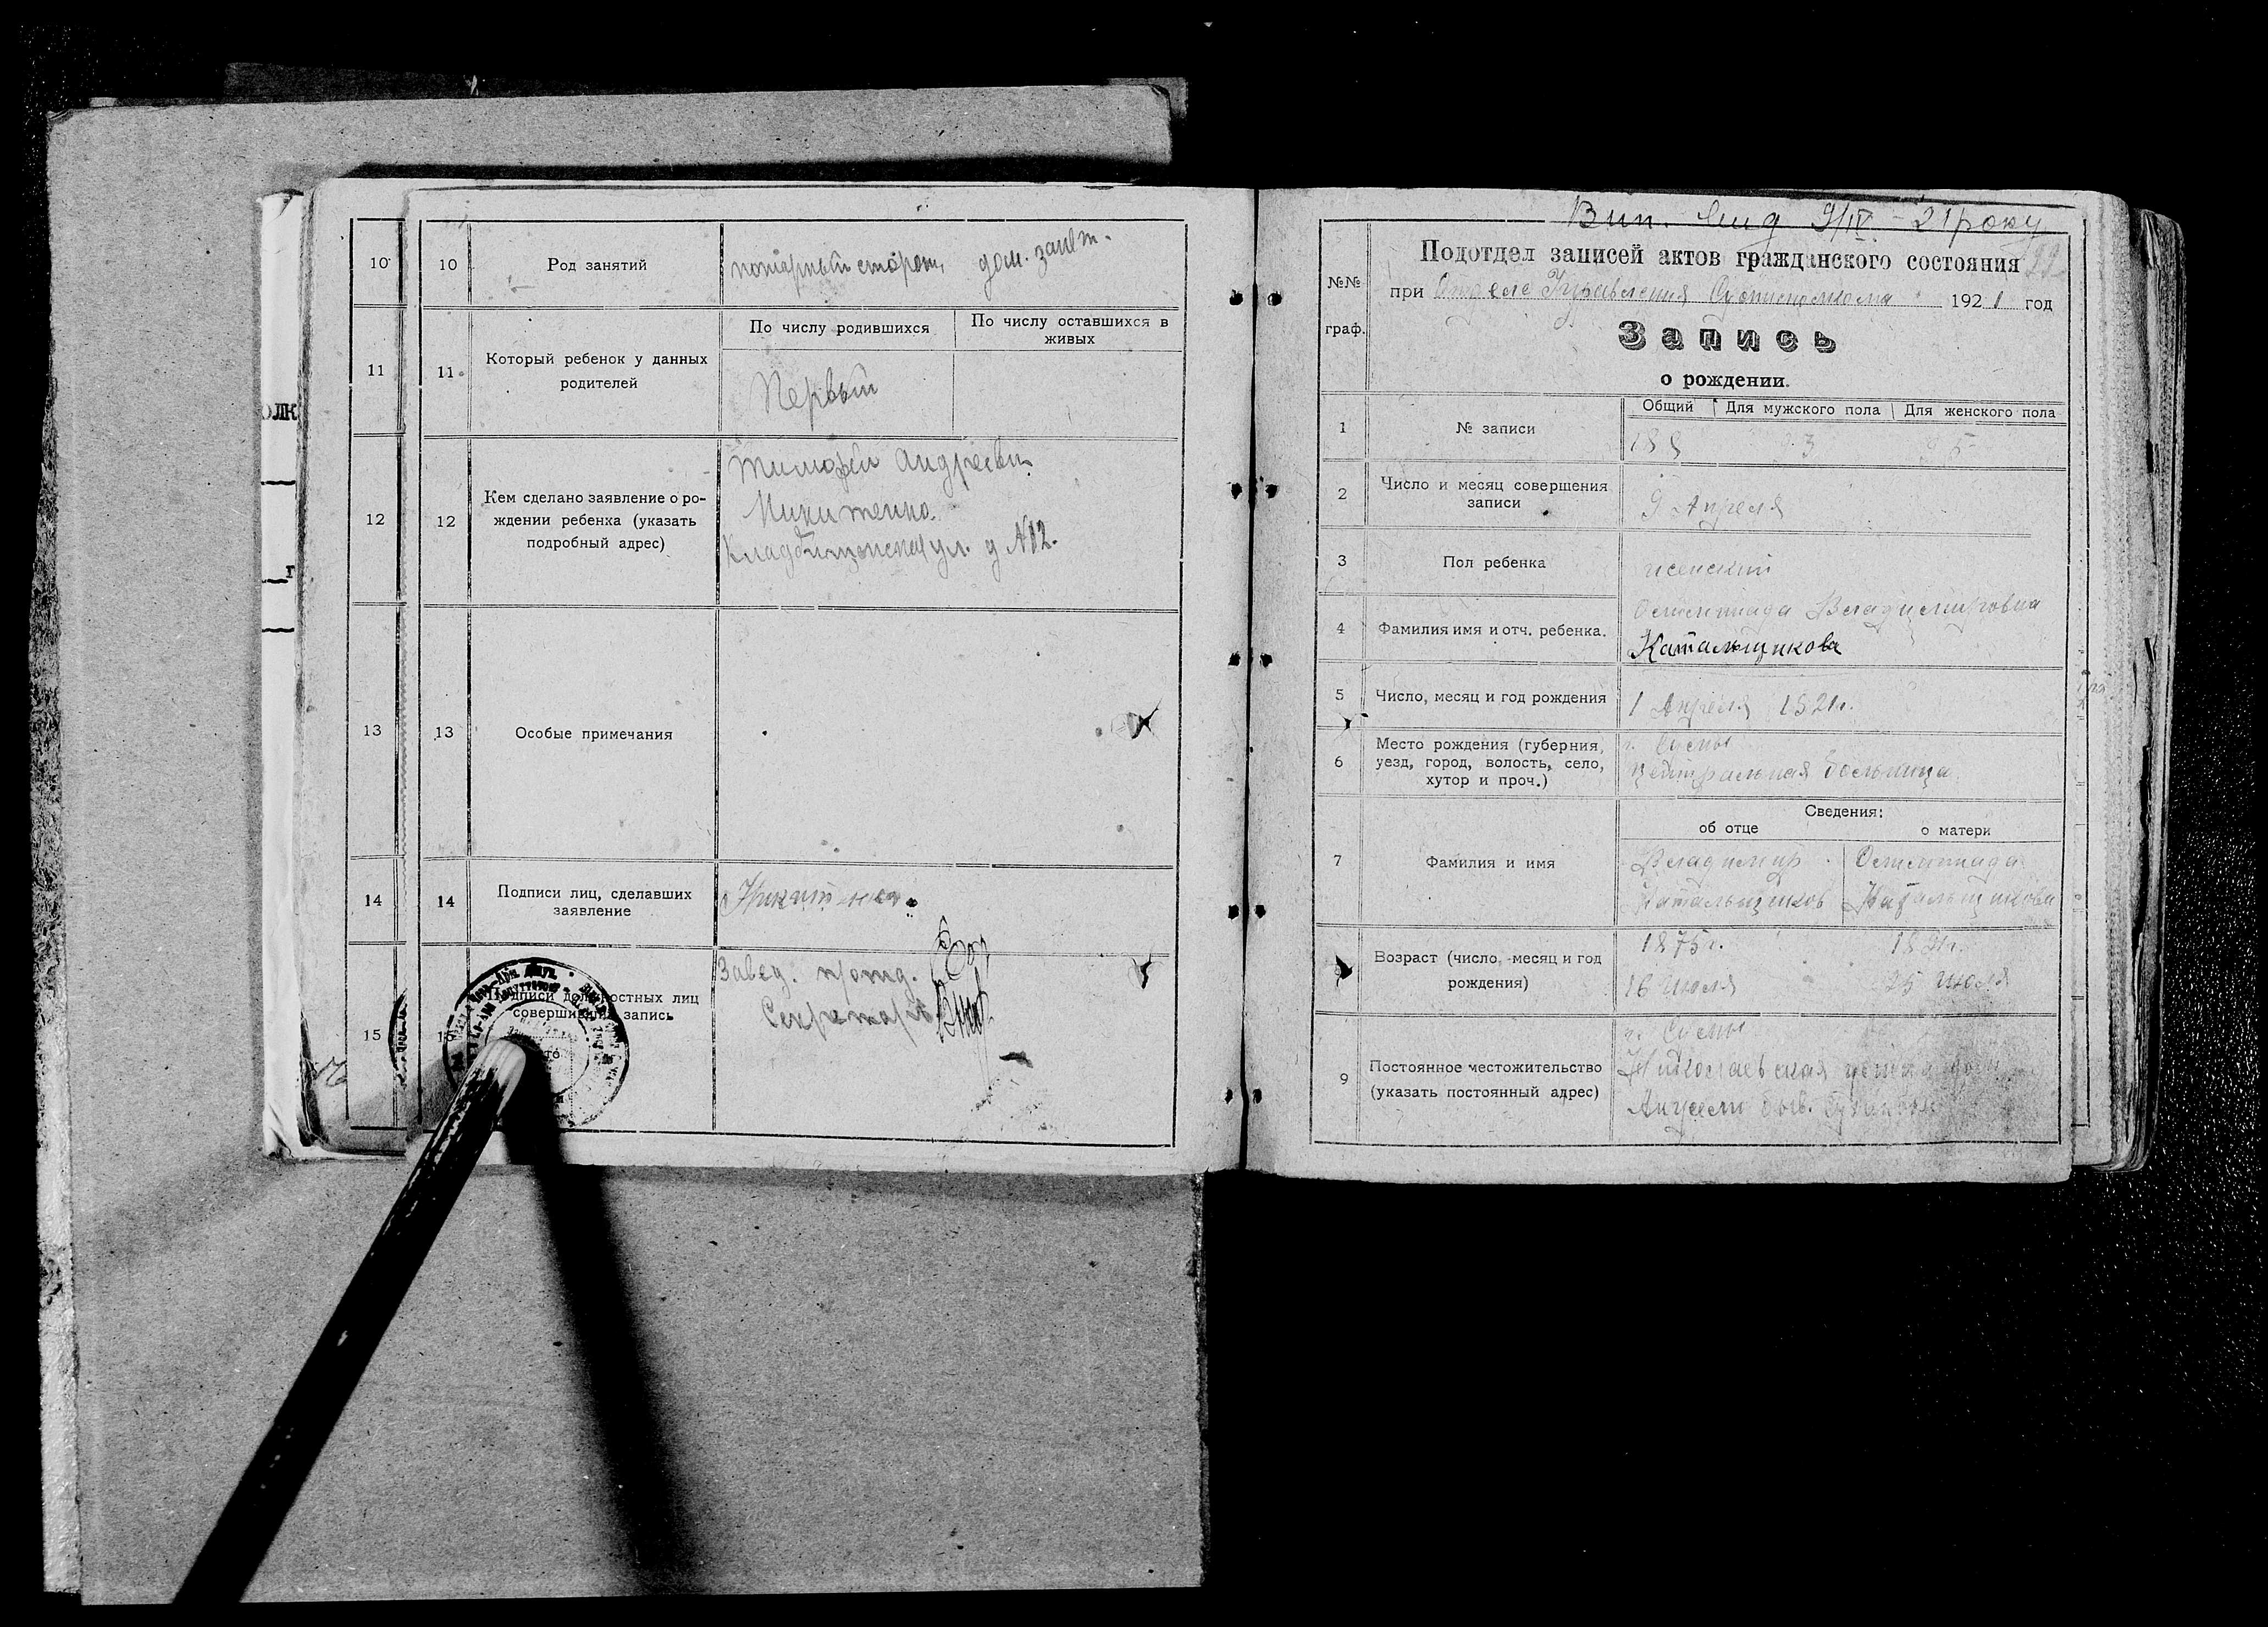 10
10
Род занятий
дом. занят.
11
11
Который ребенок у данных
родителей
По числу родившихся
По числу оставшихся в
живых
Первый
12
12
Кем сделано заявление о ро-
ждении ребенка (указать
подробный адрес)
Тимофей Андреевич
Никитенко
Кладбищенская ул. д №12.
13
13
Особые примечания
14
14
Подписи лиц, сделавших
заявление
15
15
Подписи должностных лиц
совершивших запись
Завед. п/отд.
Секретарь
9/IV - 21 року
№№
граф.
Подотдел записей актов гражданского состояния
при Отделе Управления 1921 год
Запись
о рождении.
1
№ записи
Общий
Для мужского пола
Для женского пола
188
93
95
2
Число и месяц совершения
записи
9 Апреля
3
Пол ребенка
женский
4
Фамилия имя и отч. ребенка.
Владимировна
Катальщикова
5
Число, месяц и год рождения
1 Апреля 1921г.
6
Место рождения (губерния,
уезд, город, волость, село,
хутор и проч.)
г. Сумы
Центральная больница
7
Фамилия и имя
Сведения:
об отце
о матери
Владимир
Катальщиков
Катальщикова
Возраст (число, месяц и год
рождения)
1875г.
16 Июля
25 Июля
9
Постоянное местожительство
(указать постоянный адрес)
г. Сумы
Николаевская